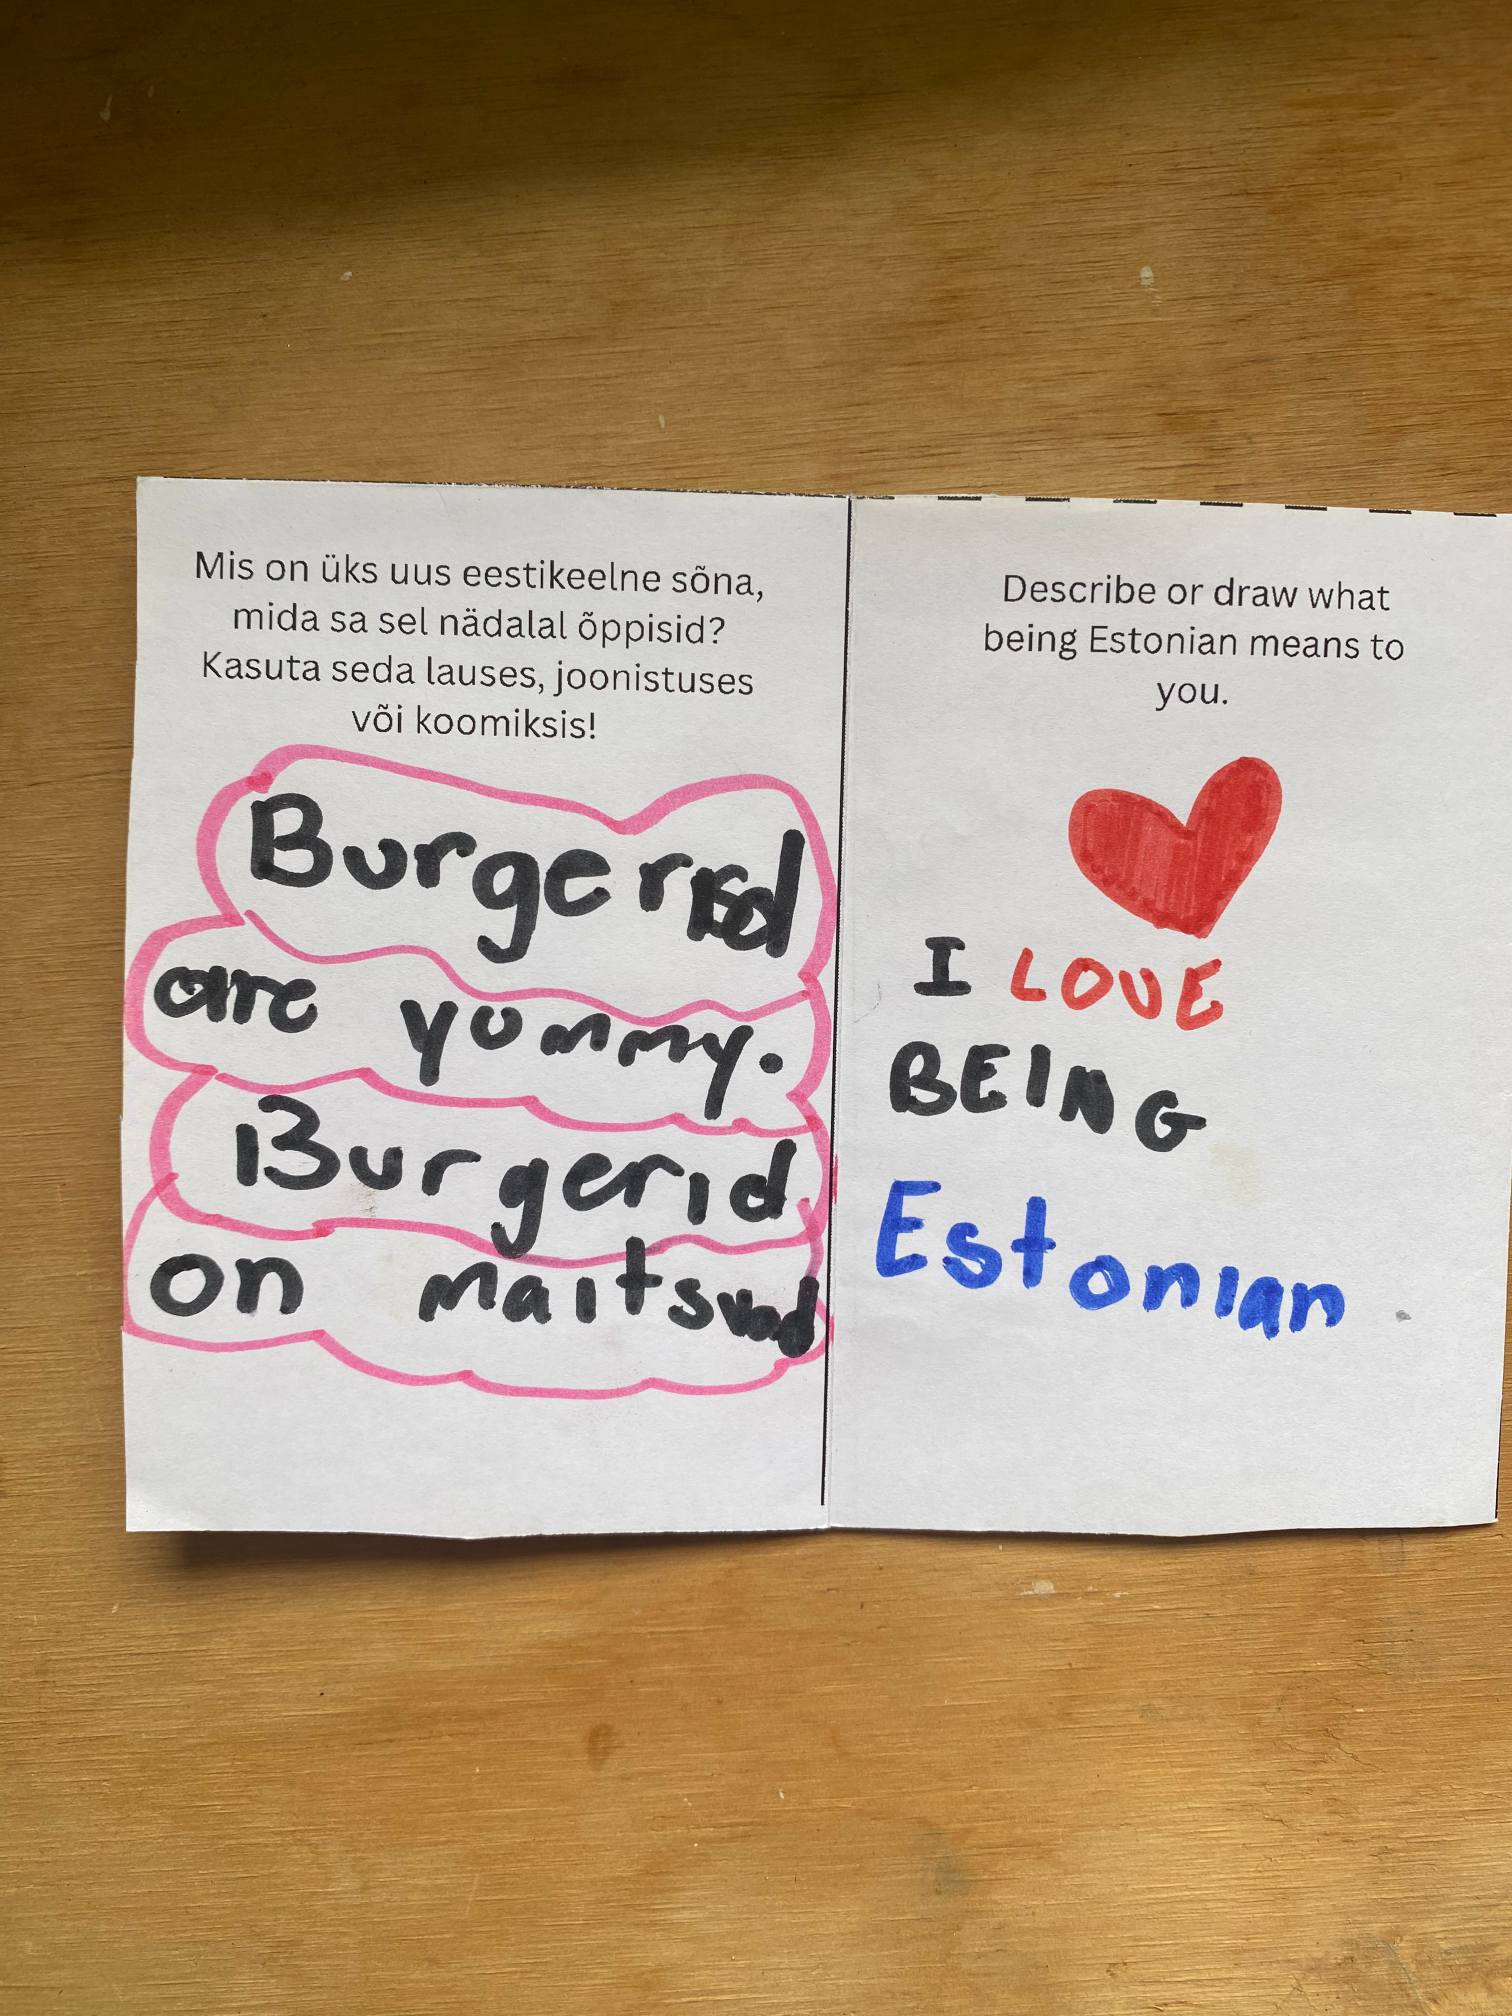 Mis on üks uus eestikeelne sõna,
mida sa sel nädalal õppisid?
Kasuta seda lauses, joonistuses
või koomiksis!
are yummy.
Burgerid
on
Describe or draw what
being Estonian means to
you.
I LOVE
BEING
Estonian